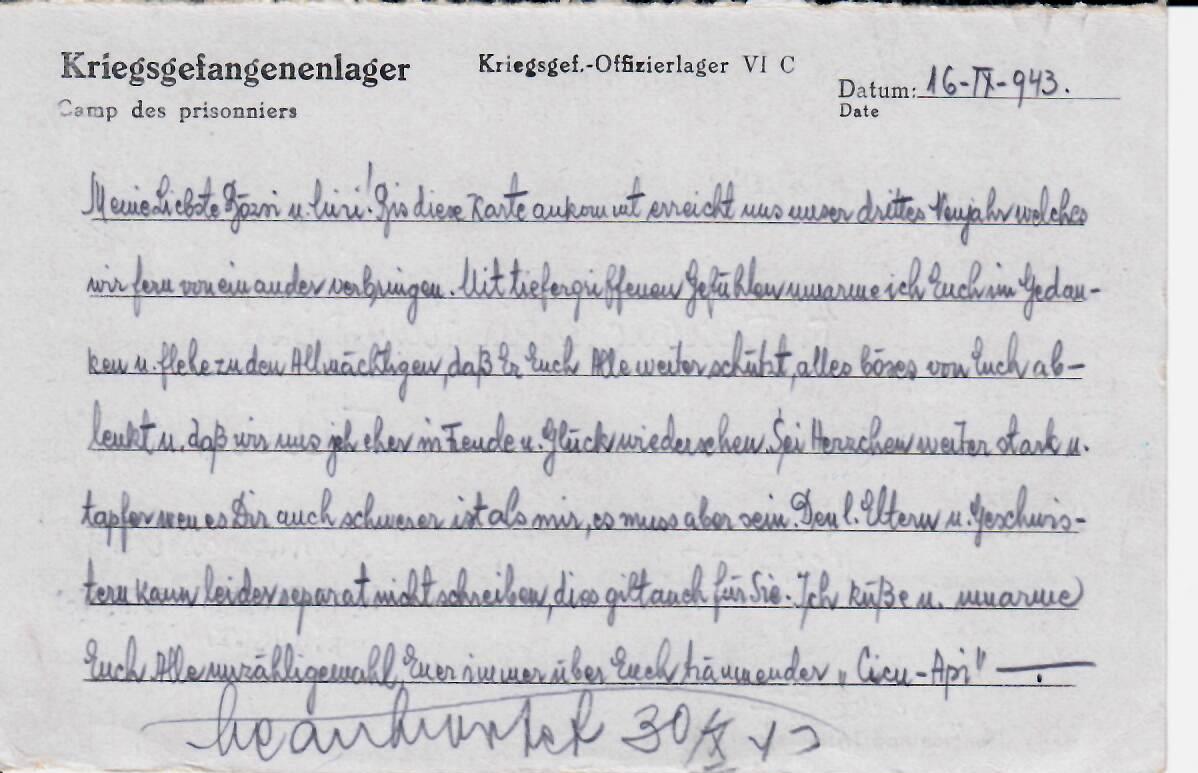 Kriegsgefangenenlager
Camp des prisonniers
Kriegsgef.-Offizierlager VI C
Datum: 16-IX-943.
Date
Meine Liebste Bözsi u. Lüri! Bis diese Karte ankommt erreicht uns unser drittes Neujahr welches
wir fern von einander verbringen. Mit tiefergriffenen Gefühlen umarme ich Euch im Gedan-
ken u. flehe zu den Allmächtigen, daß Er Euch Alle weiter schützt, alles böses von Euch ab-
lenkt u. daß wir uns jeh eher in Freude u. Glück wiedersehen. Sei Herzchen weiter stark u.
tapfer wen es Dir auch schwerer ist als mir, es muss aber sein. Den l. Eltern u. Geschwis-
tern kann leider separat nicht schreiben, dies gilt auch für Sie. Ich küße u. umarme
Euch Alle unzähligemahl, Euer immer über Euch träumender „Cicu-Api"
beantwortet 30/X 43